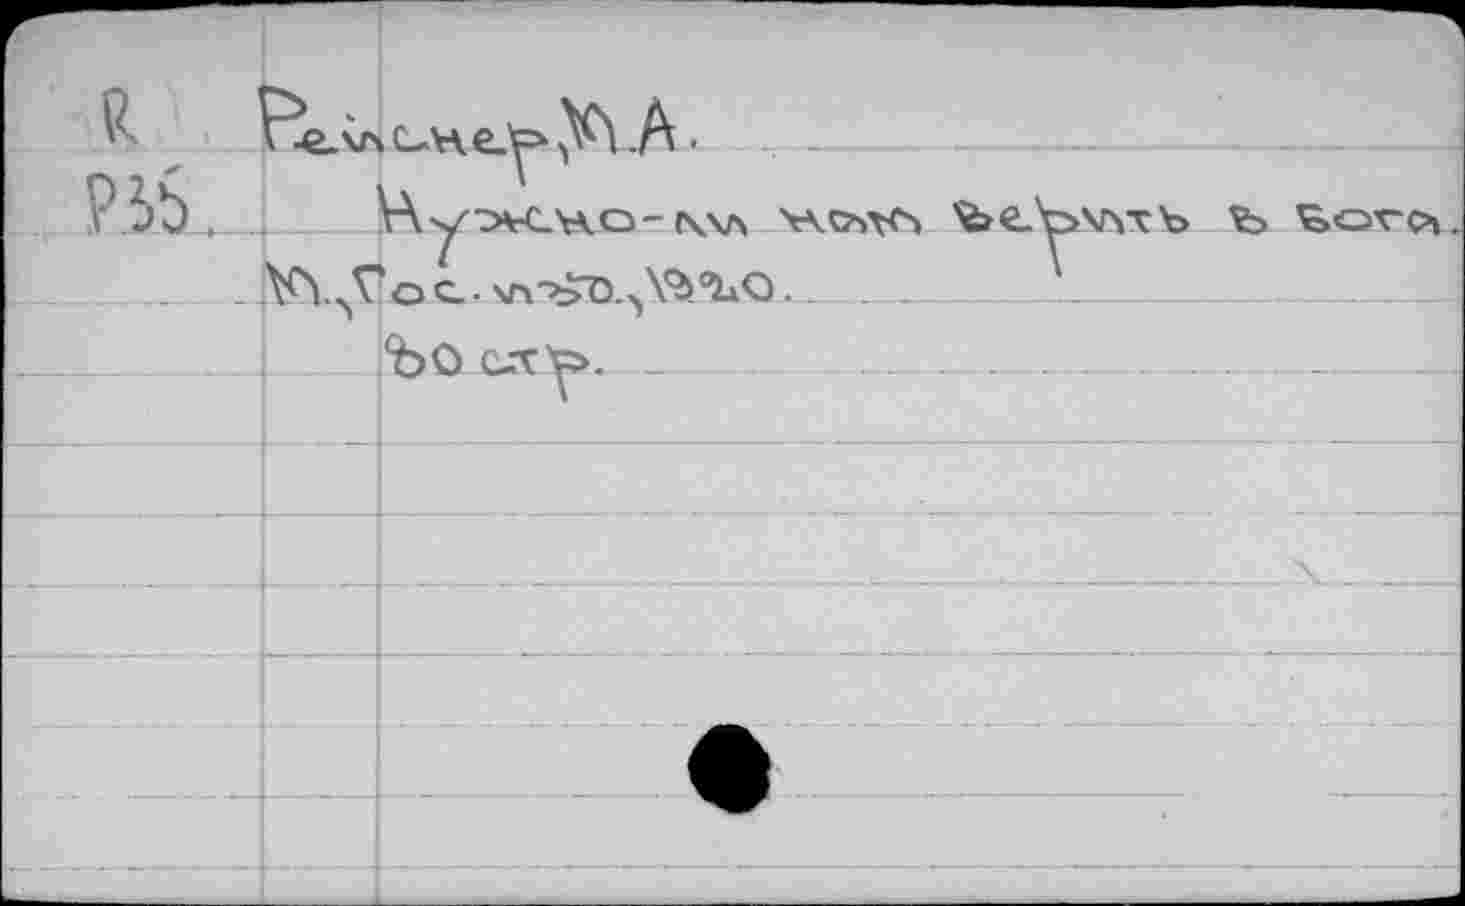 R Рейснер, М.А.
P35. Нужно-ли нам верить в Бога.
М., Гос. изд., 1920.
30 стр.